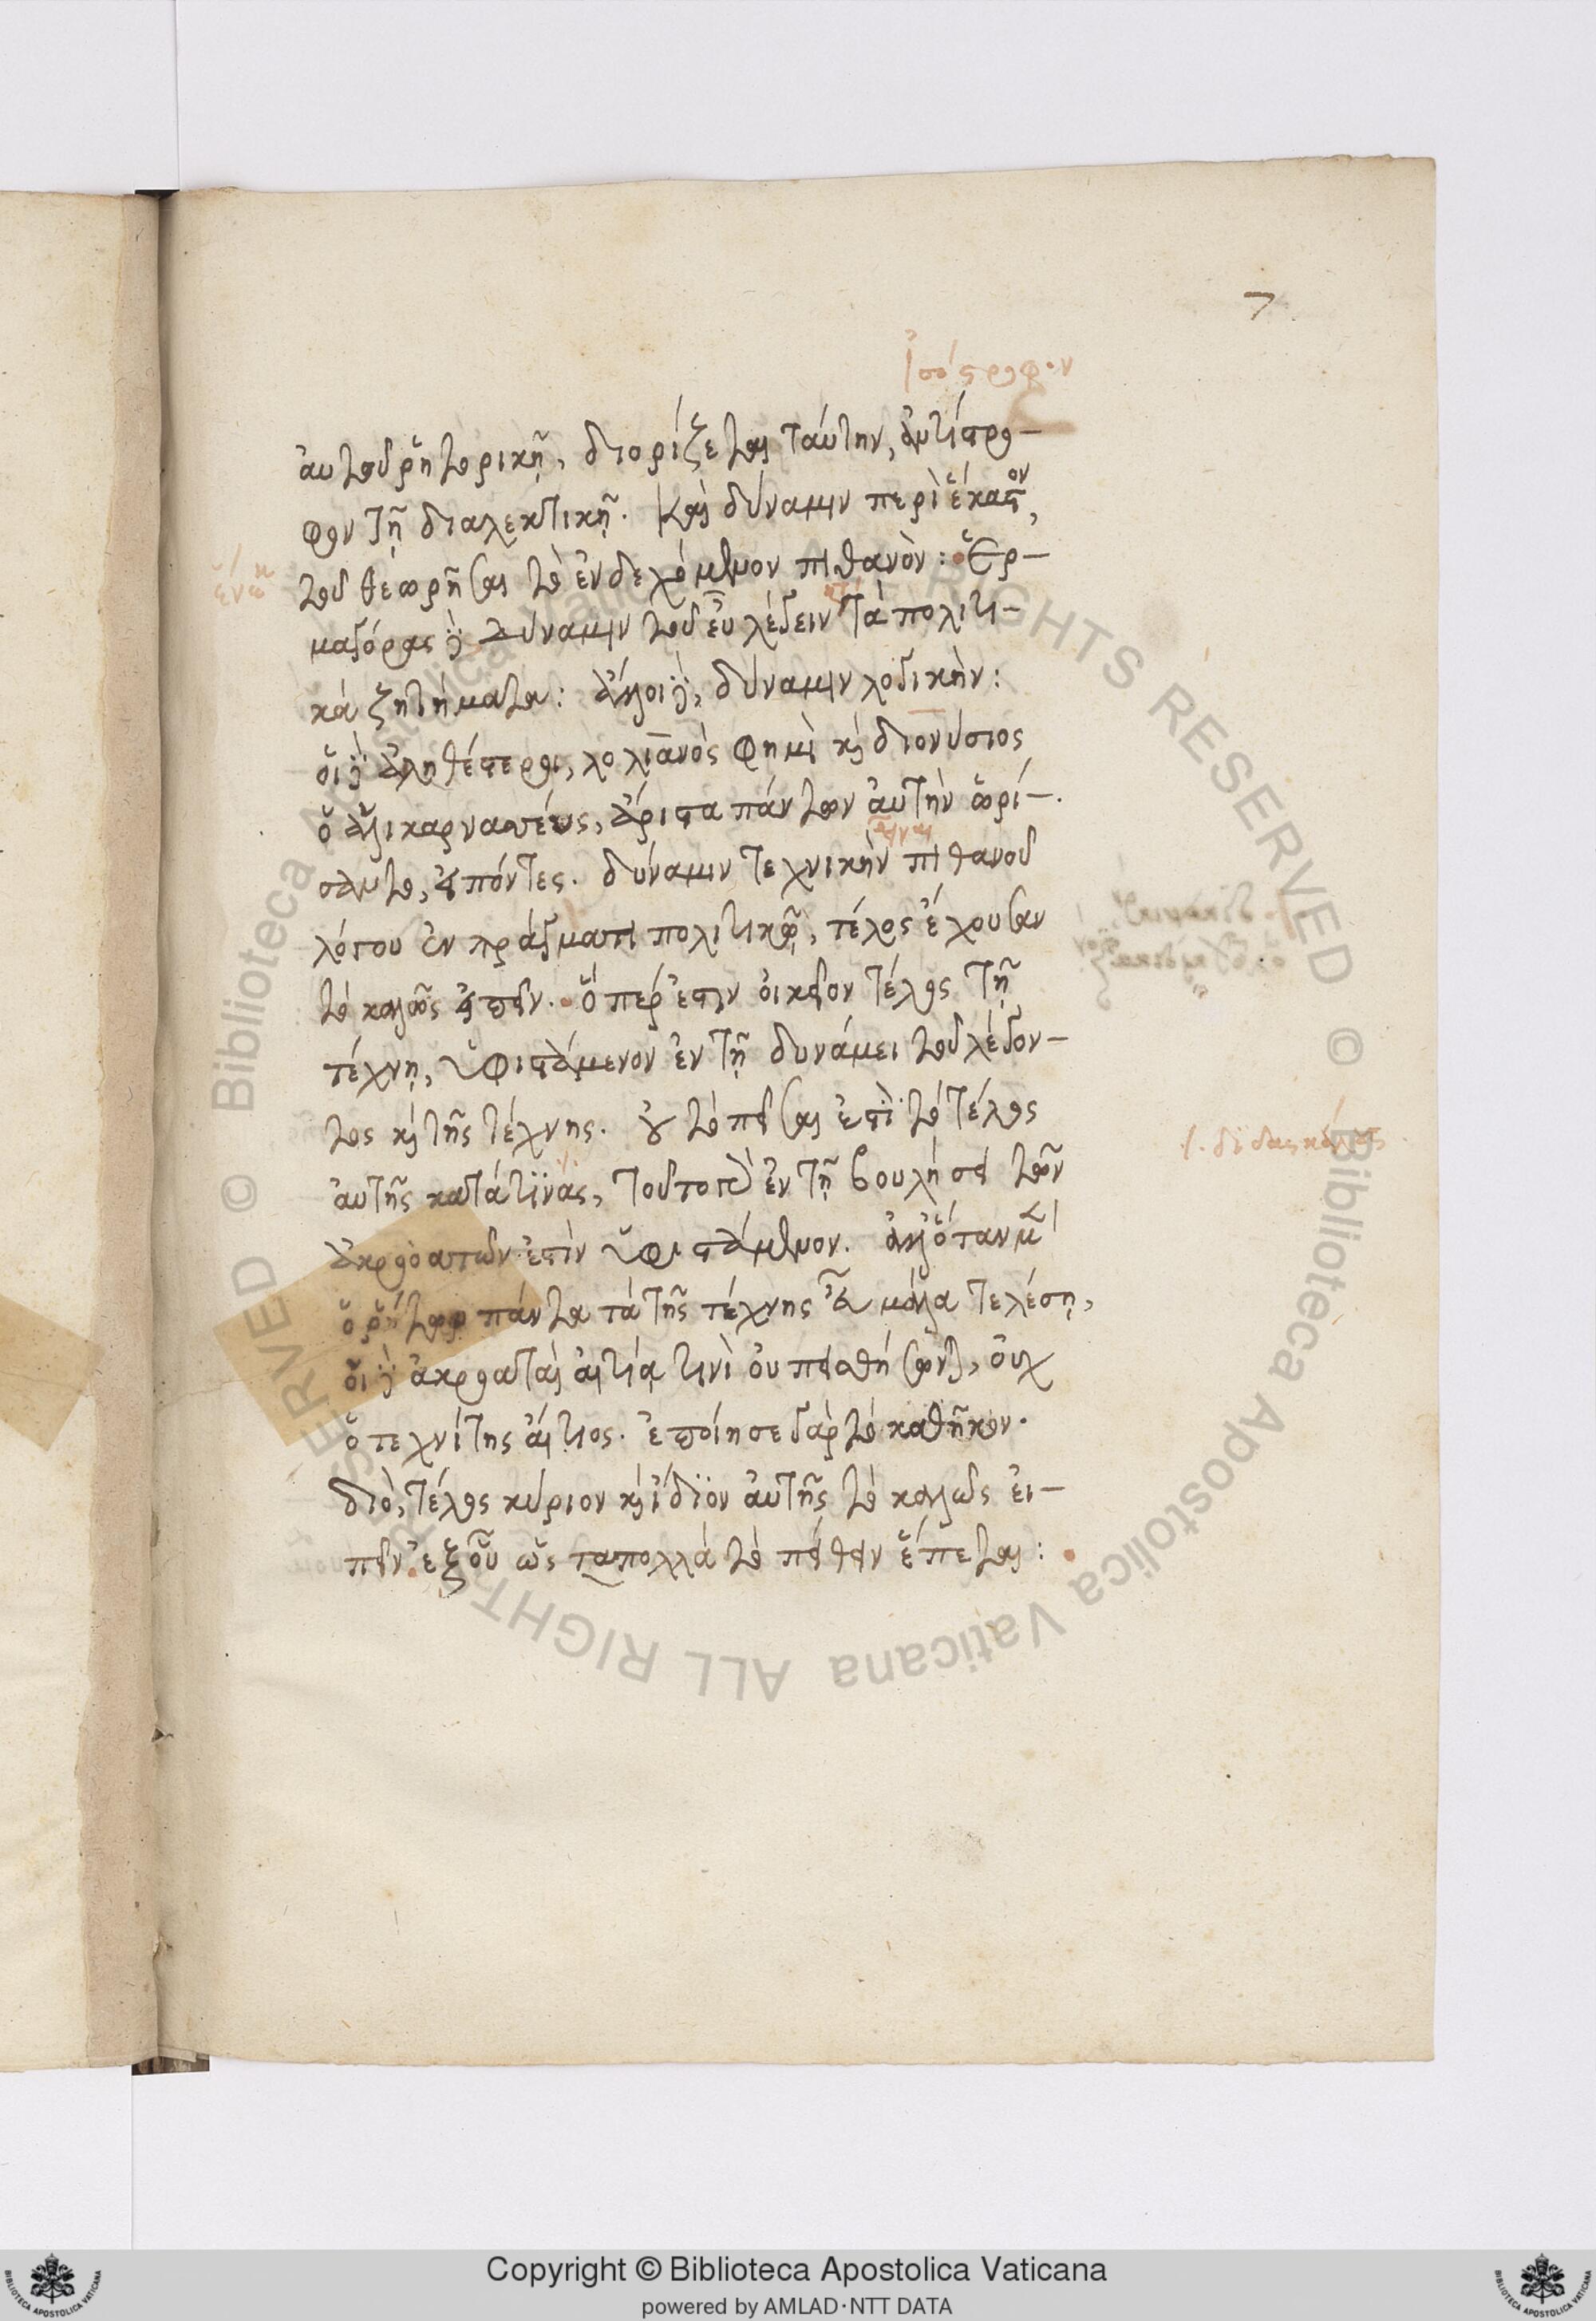 7
ἰσόστροφον
αὐτοῦ ῥητορικῇ, διορίζεται ταύτην, ἀντίστρο-
φον τῇ διαλεκτικῇ. καὶ δύναμιν περὶ ἕκαστον,
τοῦ θεωρῆσαι τὸ ἐνδεχόμενον πιθανὸν: Ἑρ-
μαγόρας δὲ δύναμιν τοῦ εὖ λέγειν τὰ πολιτι-
κά ζητήματα: ἄλλοι δὲ, δύναμιν λογικὴν:
οἱ δὲ ἀληθέστεροι, λολιανός φημὶ καὶ διονύσιος
ὁ ἁλικαρνασεύς, ἄριστα πάντων αὐτὴν ὡρί-
σαντο, εἰπόντες. δύναμιν τεχνικὴν πιθανοῦ
λόγου ἐν πράγματι πολιτικῷ, τέλος ἔχουσαν
τὸ καλῶς εἰπεῖν. ὅπερ ἐστιν οἰκεῖον τέλος τῇ
τέχνῃ, ὑφιστάμενον ἐν τῇ δυνάμει τοῦ λέγον-
τος καὶ τῆς τέχνης. οὐ τὸ πεῖσαι ἐπὶ τὸ τέλος
αὐτῆς κατά τινάς, τοῦτο γὰρ ἐν τῇ βουλήσει τῶν
ἀκροατῶν ἐστὶν ὑφιστάμενον. ἀλλ' ὅταν μὲν
ὁ ῥήτωρ πάντα τὰ τῆς τέχνης εὖ μάλα τελέσῃ,
οἱ δὲ ἀκροαταὶ αἰτίᾳ τινὶ οὐ πεισθήσωνται, οὐχ
ὁ τεχνίτης αἴτιος. ἐποίησε γὰρ τὸ καθῆκον.
διὸ, τέλος κύριον καὶ ἴδιον αὐτῆς τὸ καλῶς εἰ-
πεῖν. ἐξ οὗ ὡς ταπολλὰ τὸ πείθειν ἕπεται:
διδασκάλους
Copyright © Biblioteca Apostolica Vaticana
powered by AMLAD·NTT DATA